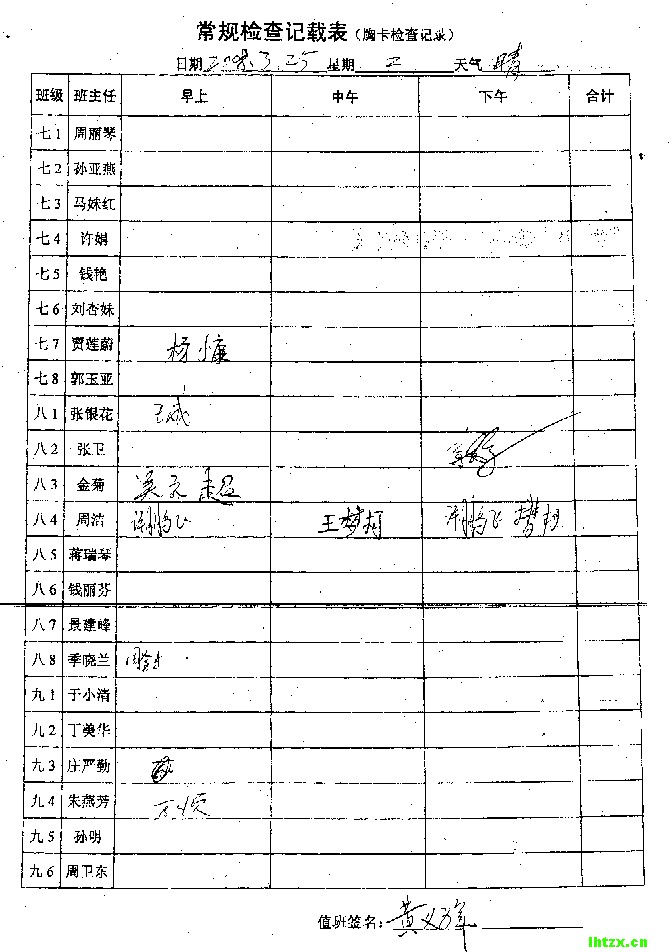 常规检查记载表（胸卡检查记录）
日期 2008.3.25 星期 二 天气 晴
班级 班主任 早上 中午 下午 合计
七1 周丽琴
七2 孙亚燕
七3 马妹红
七4 许娟
七5 钱艳
七6 刘杏妹
七7 贾莲蔚 杨
七8 郭玉亚
八1 张银花 王成
八2 张卫
八3 金菊 吴
八4 周洁 王梦
八5 蒋瑞琴
八6 钱丽芬
八7 景建峰
八8 季晓兰
九1 于小清
九2 丁美华
九3 庄严勤
九4 朱燕芳
九5 孙明
九6 周卫东
值班签名： 黄
lhtzx.cn